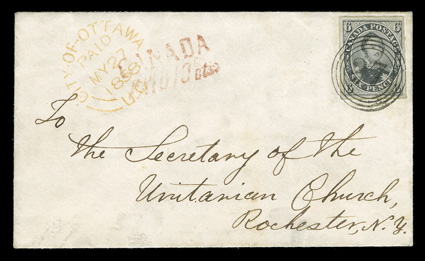 CITY-OF-OTTAWA
PAID
MY 27
1858
U.C.
CANADA
PAID 10 Cts
CANADA POSTAGE
SIX PENCE
To
the Secretary of the
Unitarian Church,
Rochester, N.Y.